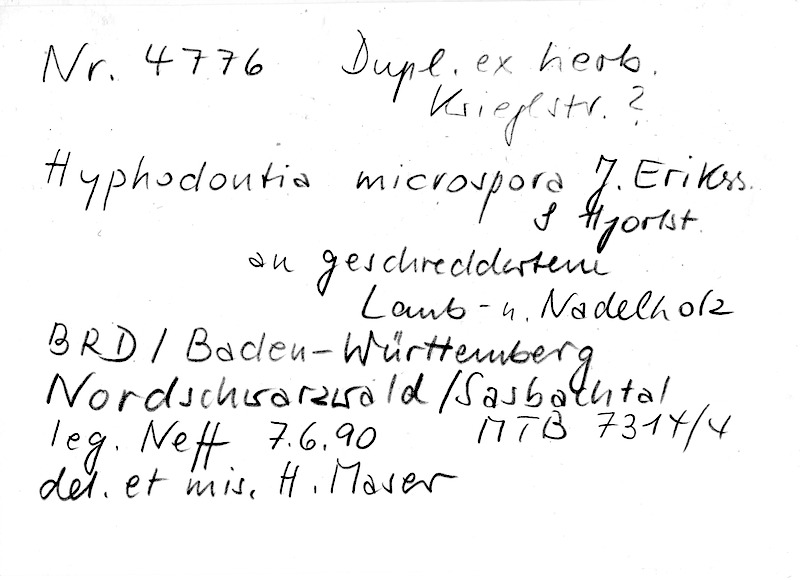 Nr. 4776 Dupl. ex herb.
Krieglstr. ?
Hyphodontia microspora J. Erikss.
& Hjortst.
an geschreddertem
Laub- u. Nadelholz
BRD / Baden-Württemberg
Nordschwarzwald /Sasbachtal
leg. Neff 7.6.90 MTB 7314/4
det. et mis. H. Maser